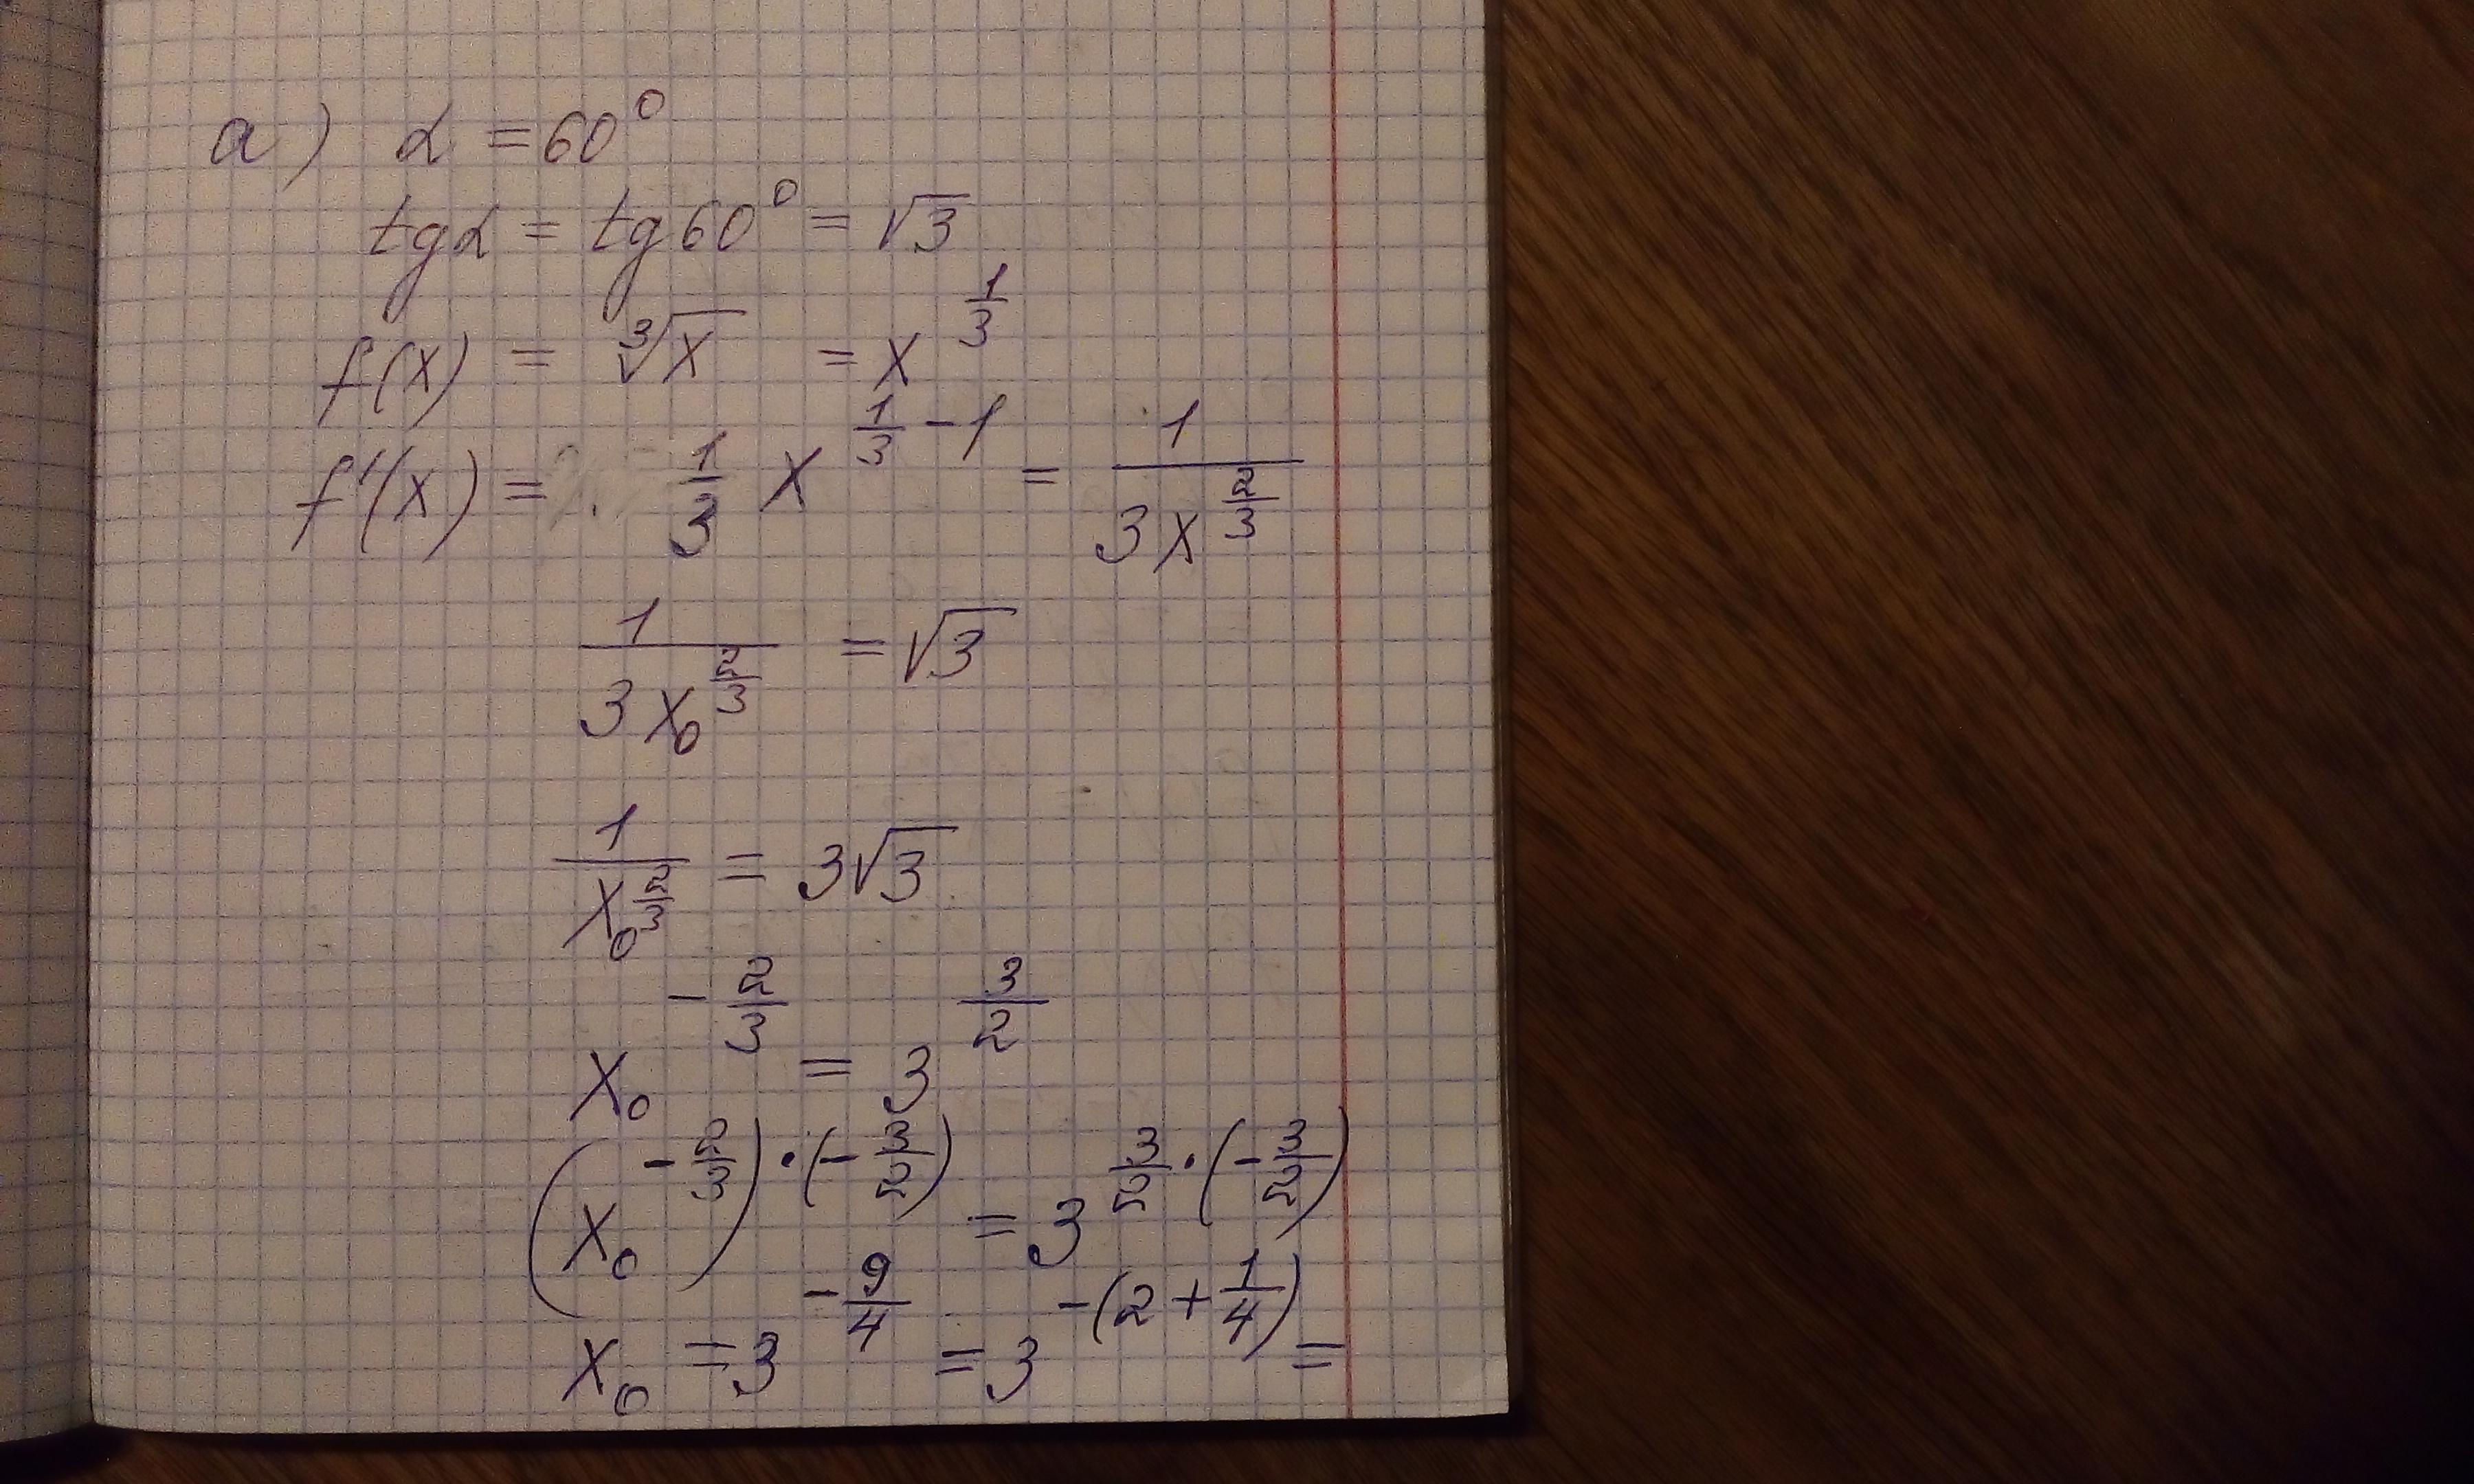 а) α = 60°
tgα = tg60° = √3
f(x) = ∛x = x^(1/3)
f'(x) = 1/3 x^(1/3 - 1) = 1/(3x^(2/3))
1/(3x₀^(2/3)) = √3
1/(x₀^(2/3)) = 3√3
x₀^(-2/3) = 3^(3/2)
(x₀^(-2/3))·(-3/2) = 3^(3/2·(-3/2))
x₀ = 3^(-9/4) = 3^(-(2+1/4)) =